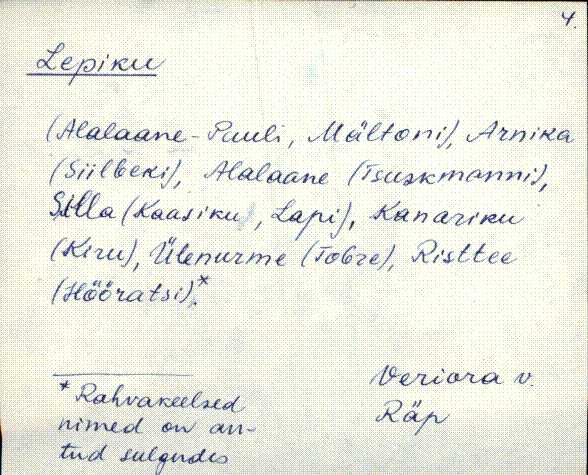 4.
Lepiku
(Alalaane-Puuli, Mältoni), Arnika
(Siilbeki), Alalaane (Tsuskmanni),
Silla (Kaasiku, Lapi), Kanariku
(Kiru), Ülenurme (Tobre), Risttee
(Hööratsi).*
* Rahvakeelsed
nimed on an-
tud sulgudes
Veriora v.
Räp